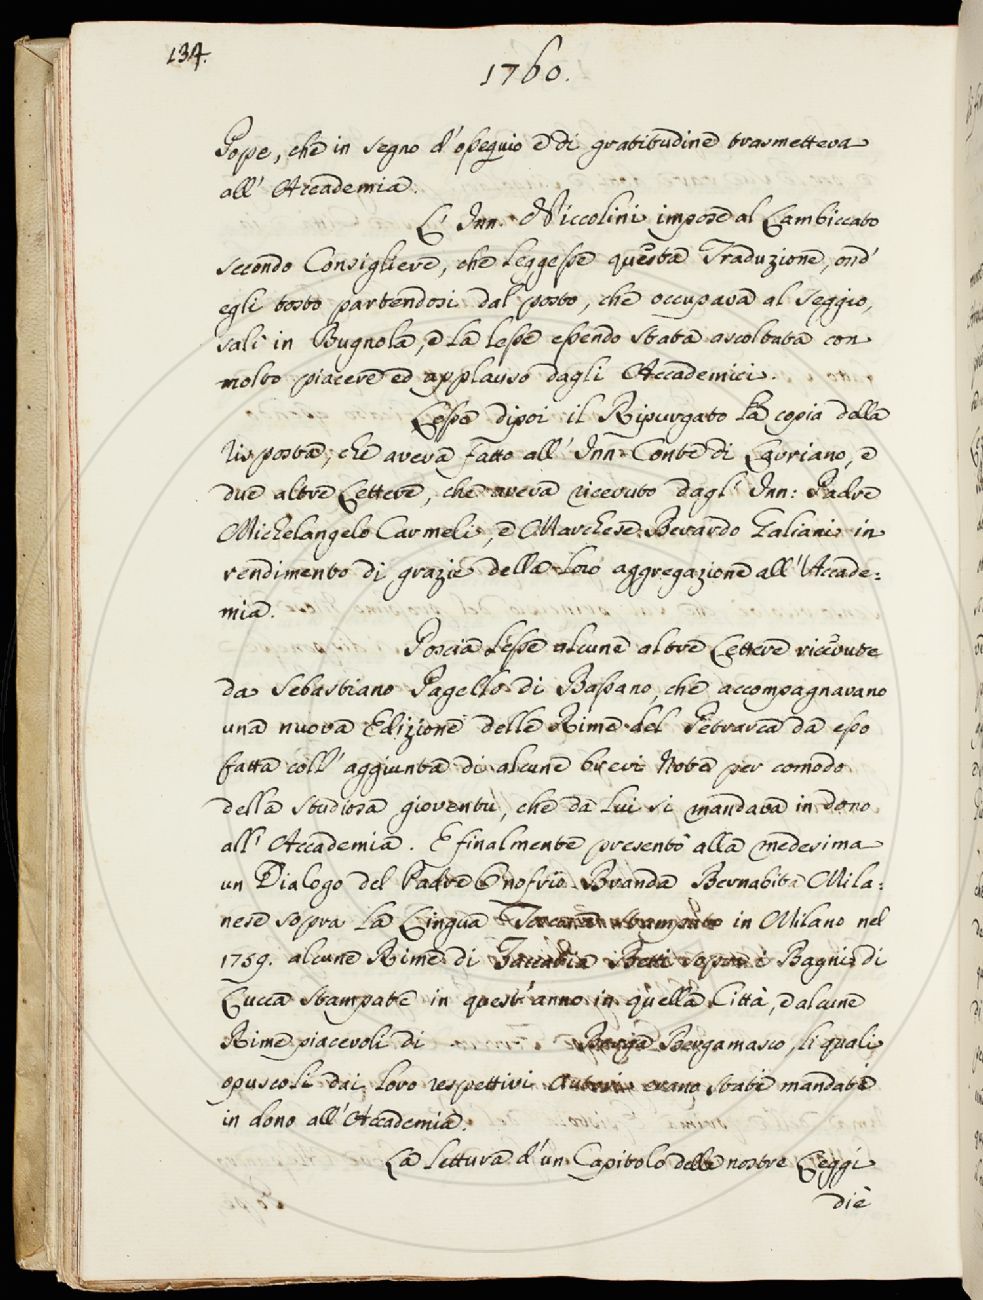 134.
1760.
Pope, che in segno d'ossequio e di gratitudine trasmetteva
all' Accademia.
L' Inn. Niccolini impose al Lambiccato
secondo Consigliere, che leggesse questa Traduzione, ond'
egli tosto partendosi dal posto, che occupava al seggio,
salì in Bugnola, e la lesse essendo stata ascoltata con
molto piacere ed applauso dagli Accademici.
Lesse dipoi il Ripurgato la copia della
risposta, che aveva fatto all' Inn. Conte di Lavriano, e
due altre Lettere, che aveva ricevuto dagl' Inn: Padre
Michelangelo Carmeli, e Marchese Berardo Galiani in
rendimento di grazie della loro aggregazione all' Accade:
mia.
Poscia lesse alcune altre Lettere ricevute
da Sebastiano Pagello di Bassano, che accompagnavano
una nuova Edizione delle Rime del Petrarca da esso
fatta coll' aggiunta di alcune brevi Note per comodo
della studiosa gioventù, che da lui si mandava in dono
all' Accademia. E finalmente presentò alla medesima
un Dialogo del Padre Onofrio Branda Bernabita Mila:
nese sopra la Lingua Toscana stampato in Milano nel
1759. alcune Rime di Zaccaria Betti sopra i Bagni di
Lucca stampate in quest' anno in quella Città, e alcune
Rime piacevoli di Bergamasco, li quali
opuscoli dai loro respettivi Autori erano stati mandati
in dono all' Accademia.
La lettura d' un Capitolo delle nostre Leggi
diè